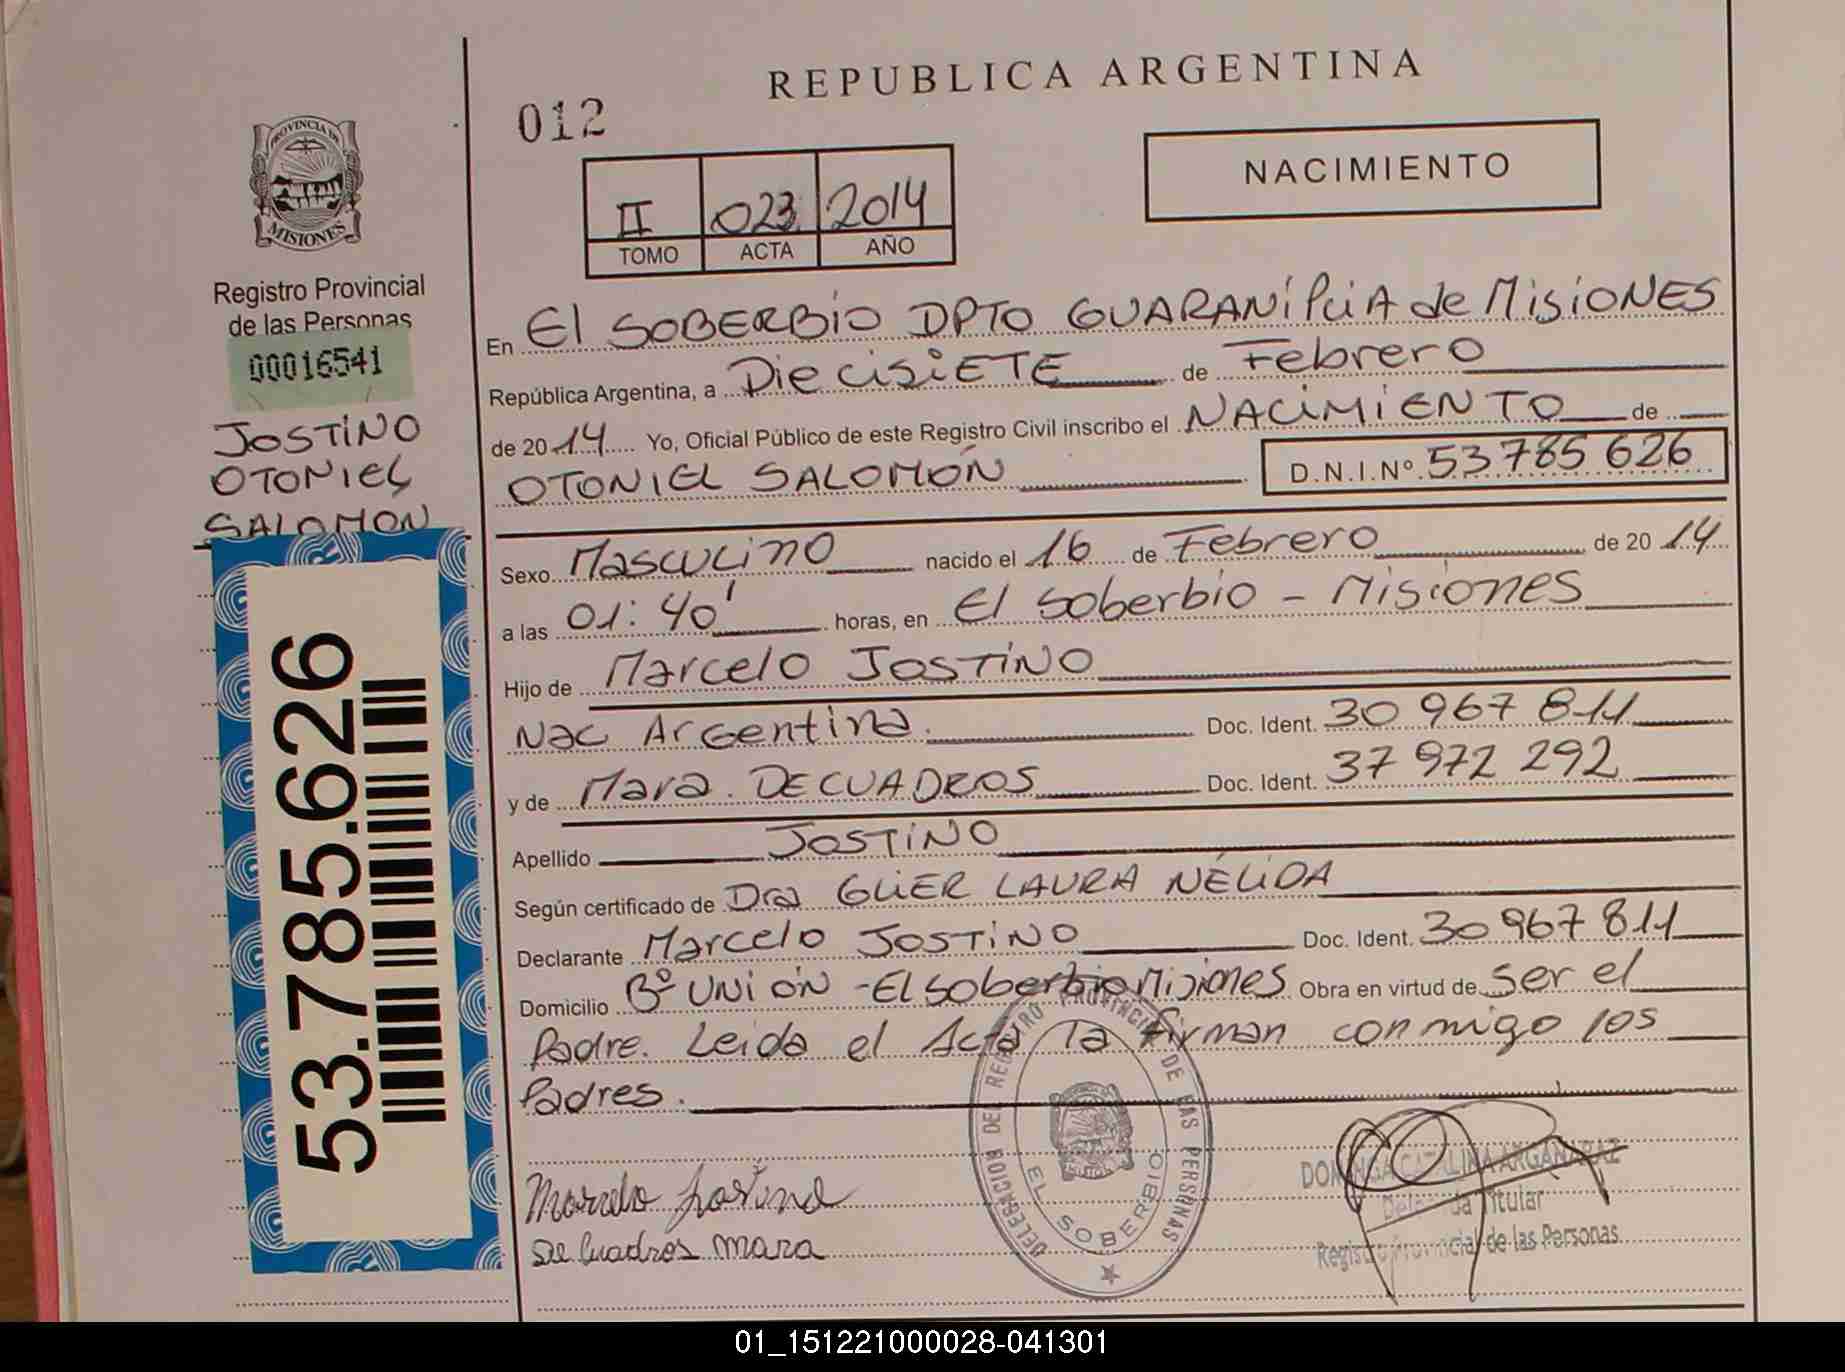 REPUBLICA ARGENTINA
012
NACIMIENTO
II 023 2014
TOMO ACTA AÑO
PROVINCIA DE
MISIONES
Registro Provincial
de las Personas
00016541
JOSTINO
OTONIEL
SALOMON
53.785.626
En El SOBERBIO DPTO GUARANÍ PciA de MISIONES
República Argentina, a DiecisiETE de Febrero
de 2014 Yo, Oficial Público de este Registro Civil inscribo el NACIMIENTO de
OTONIEL SALOMÓN D.N.I.Nº 53 785 626
Sexo Masculino nacido el 16 de Febrero de 2014
a las 01:40' horas, en El Soberbio - Misiones
Hijo de Marcelo JOSTINO
Nac Argentina. Doc. Ident. 30 967 811
y de Mara. DECUADROS Doc. Ident. 37 972 292
Apellido JOSTINO
Según certificado de Dra GLIER LAURA NÉLIDA
Declarante Marcelo JOSTINO Doc. Ident. 30 967 811
Domicilio Bº UNIÓN - El Soberbio Misiones Obra en virtud de ser el
Padre. Leida el Acta la firman conmigo los
Padres.
Marcelo Jostino
De Cuadros Mara
DELEGACION DEL REGISTRO PROVINCIAL DE LAS PERSONAS
EL SOBERBIO
DOMINGA CATALINA ARGAÑARAZ
Delegada Titular
Registro Provincial de las Personas
01_151221000028-041301